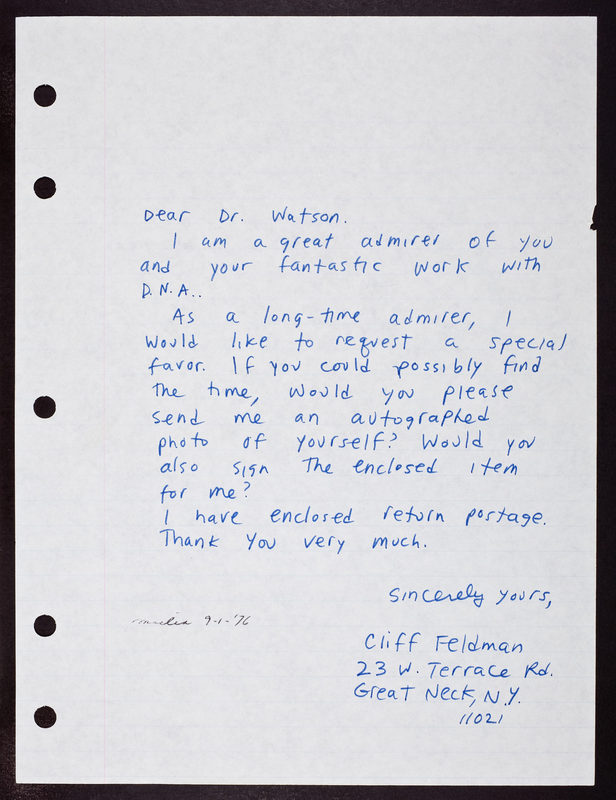 Dear Dr. Watson.
I am a great admirer of you
and your fantastic work with
D.N.A..
As a long-time admirer, I
would like to request a special
favor. If you could possibly find
the time, would you please
send me an autographed
photo of yourself? Would you
also sign the enclosed item
for me?
I have enclosed return postage.
Thank you very much.
Sincerely yours,
mailed 9-1-'76
Cliff Feldman
23 W. Terrace Rd.
Great Neck, N.Y.
11021